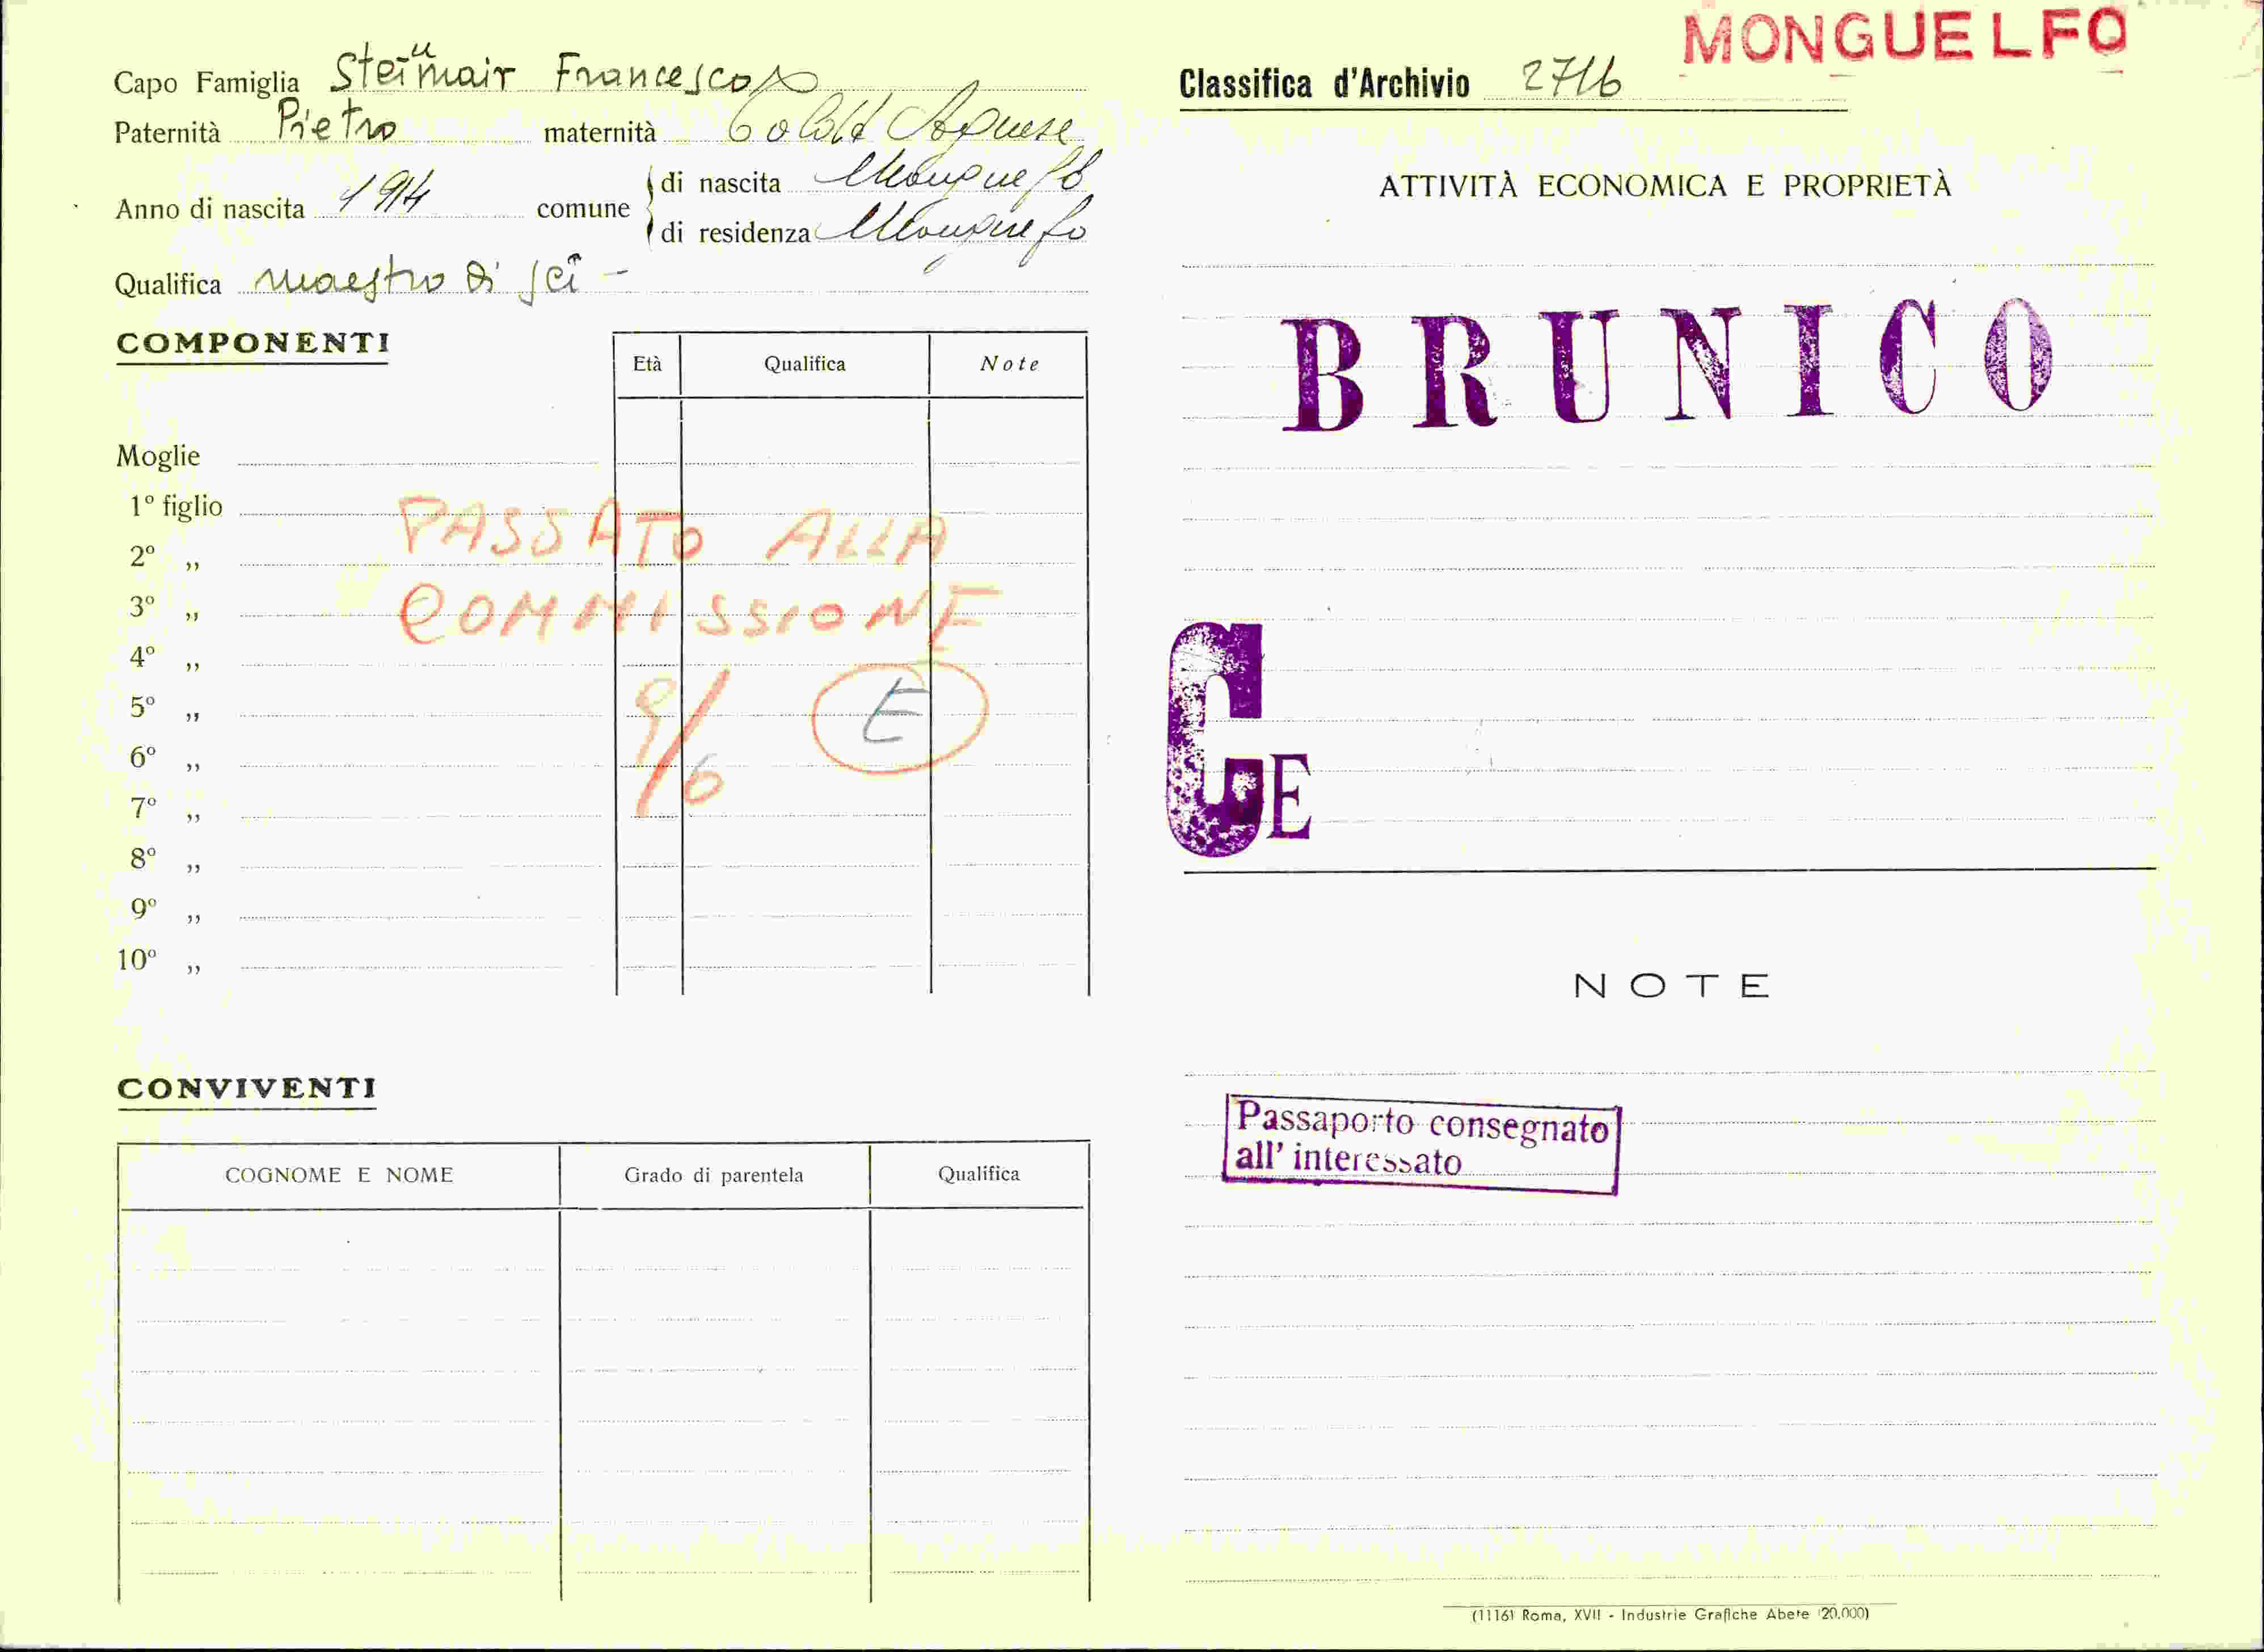 MONGUELFO
Capo Famiglia Steinmair Francesco
Paternità Pietro maternità Agnese
Anno di nascita 1914 comune di nascita Monguelfo
di residenza Monguelfo
Qualifica maestro di sci -
COMPONENTI
Età Qualifica Note
Moglie
1º figlio
2º „
3º „
4º „
5º „
6º „
7º „
8º „
9º „
10º „
PASSATO ALLA
COMMISSIONE
9/6 E
CONVIVENTI
COGNOME E NOME Grado di parentela Qualifica
Classifica d'Archivio 2716
ATTIVITÀ ECONOMICA E PROPRIETÀ
BRUNICO
GE
NOTE
Passaporto consegnato
all' interessato
(1116) Roma, XVII - Industrie Grafiche Abete (20.000)